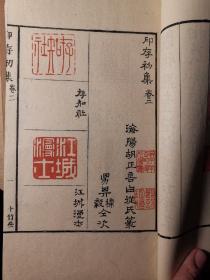 印存初集 卷二
海陽胡正言曰從氏篆
男其樸
毅
仝次
江城漫士
江城漫士
印存初集
卷二
一
十竹齋